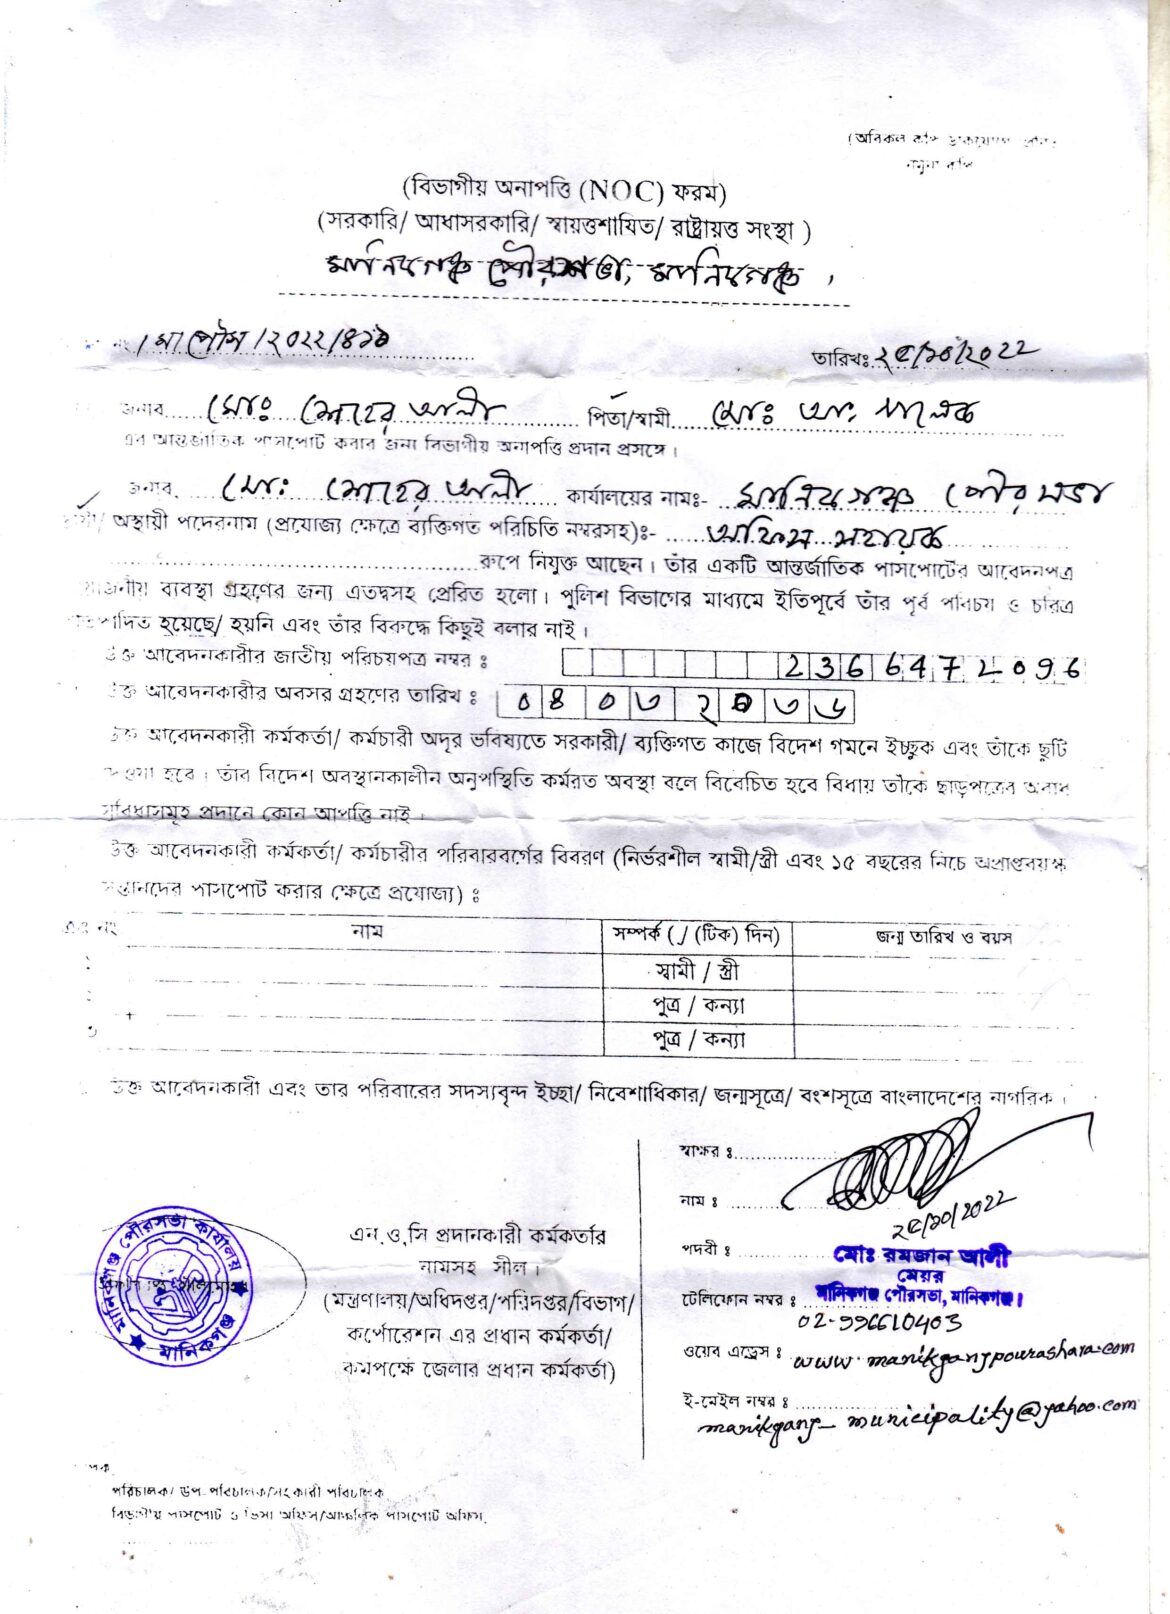 (অবিকল কপি
নমুনা কপি
(বিভাগীয় অনাপত্তি (NOC) ফরম)
(সরকারি/ আধাসরকারি/ স্বায়ত্তশায়িত/ রাষ্ট্রায়ত্ত সংস্থা )
মানিকগঞ্জ পৌরসভা, মানিকগঞ্জ ।
নং/মাপৌস/২০২২/৪১৯
তারিখঃ ২৫/১০/২০২২
জনাব মোঃ মোহের আলী পিতা/স্বামী মোঃ আঃ মালেক
এর আন্তর্জাতিক পাসপোর্ট করার জন্য বিভাগীয় অনাপত্তি প্রদান প্রসঙ্গে ।
জনাব, মোঃ মোহের আলী কার্যালয়ের নামঃ- মানিকগঞ্জ পৌরসভা
স্থায়ী/ অস্থায়ী পদেরনাম (প্রযোজ্য ক্ষেত্রে ব্যক্তিগত পরিচিতি নম্বরসহ)ঃ- অফিস সহায়ক
রুপে নিযুক্ত আছেন । তাঁর একটি আন্তর্জাতিক পাসপোর্টের আবেদনপত্র
প্রয়োজনীয় ব্যবস্থা গ্রহণের জন্য এতদ্বসহ প্রেরিত হলো । পুলিশ বিভাগের মাধ্যমে ইতিপূর্বে তাঁর পূর্ব পরিচয় ও চরিত্র
প্রতিপাদিত হয়েছে/ হয়নি এবং তাঁর বিরুদ্ধে কিছুই বলার নাই ।
উক্ত আবেদনকারীর জাতীয় পরিচয়পত্র নম্বর ঃ 2366472096
উক্ত আবেদনকারীর অবসর গ্রহণের তারিখ ঃ ০৪ ০৩ ২০৩৬
উক্ত আবেদনকারী কর্মকর্তা/ কর্মচারী অদূর ভবিষ্যতে সরকারী/ ব্যক্তিগত কাজে বিদেশ গমনে ইচ্ছুক এবং তাঁকে ছুটি
দেওয়া হবে । তাঁর বিদেশ অবস্থানকালীন অনুপস্থিতি কর্মরত অবস্থা বলে বিবেচিত হবে বিধায় তাঁকে ছাড়পত্রের অবাধ
সুবিধাসমূহ প্রদানে কোন আপত্তি নাই ।
উক্ত আবেদনকারী কর্মকর্তা/ কর্মচারীর পরিবারবর্গের বিবরণ (নির্ভরশীল স্বামী/স্ত্রী এবং ১৫ বছরের নিচে অপ্রাপ্তবয়স্ক
সন্তানদের পাসপোর্ট করার ক্ষেত্রে প্রযোজ্য) ঃ
নং নাম সম্পর্ক (√ (টিক) দিন) জন্ম তারিখ ও বয়স
স্বামী / স্ত্রী
পুত্র / কন্যা
৩ পুত্র / কন্যা
উক্ত আবেদনকারী এবং তার পরিবারের সদস্যবৃন্দ ইচ্ছা/ নিবেশাধিকার/ জন্মসূত্রে/ বংশসূত্রে বাংলাদেশের নাগরিক ।
স্বাক্ষর ঃ
নাম ঃ
২৫/১০/২০২২
পদবী ঃ মোঃ রমজান আলী
মেয়র
টেলিফোন নম্বর ঃ মানিকগঞ্জ পৌরসভা, মানিকগঞ্জ ।
02-996610403
ওয়েব এড্রেস ঃ www.manikganjpourashava.com
ই-মেইল নম্বর ঃ
manikganj_municipality@yahoo.com
এন.ও.সি প্রদানকারী কর্মকর্তার
নামসহ সীল ।
(মন্ত্রণালয়/অধিদপ্তর/পরিদপ্তর/বিভাগ/
কর্পোরেশন এর প্রধান কর্মকর্তা/
কমপক্ষে জেলার প্রধান কর্মকর্তা)
মানিকগঞ্জ পৌরসভা কার্যালয়
মানিকগঞ্জ
পরিচালক/ উপ-পরিচালক/সহকারী পরিচালক
বিভাগীয় পাসপোর্ট ও ভিসা অফিস/আঞ্চলিক পাসপোর্ট অফিস,